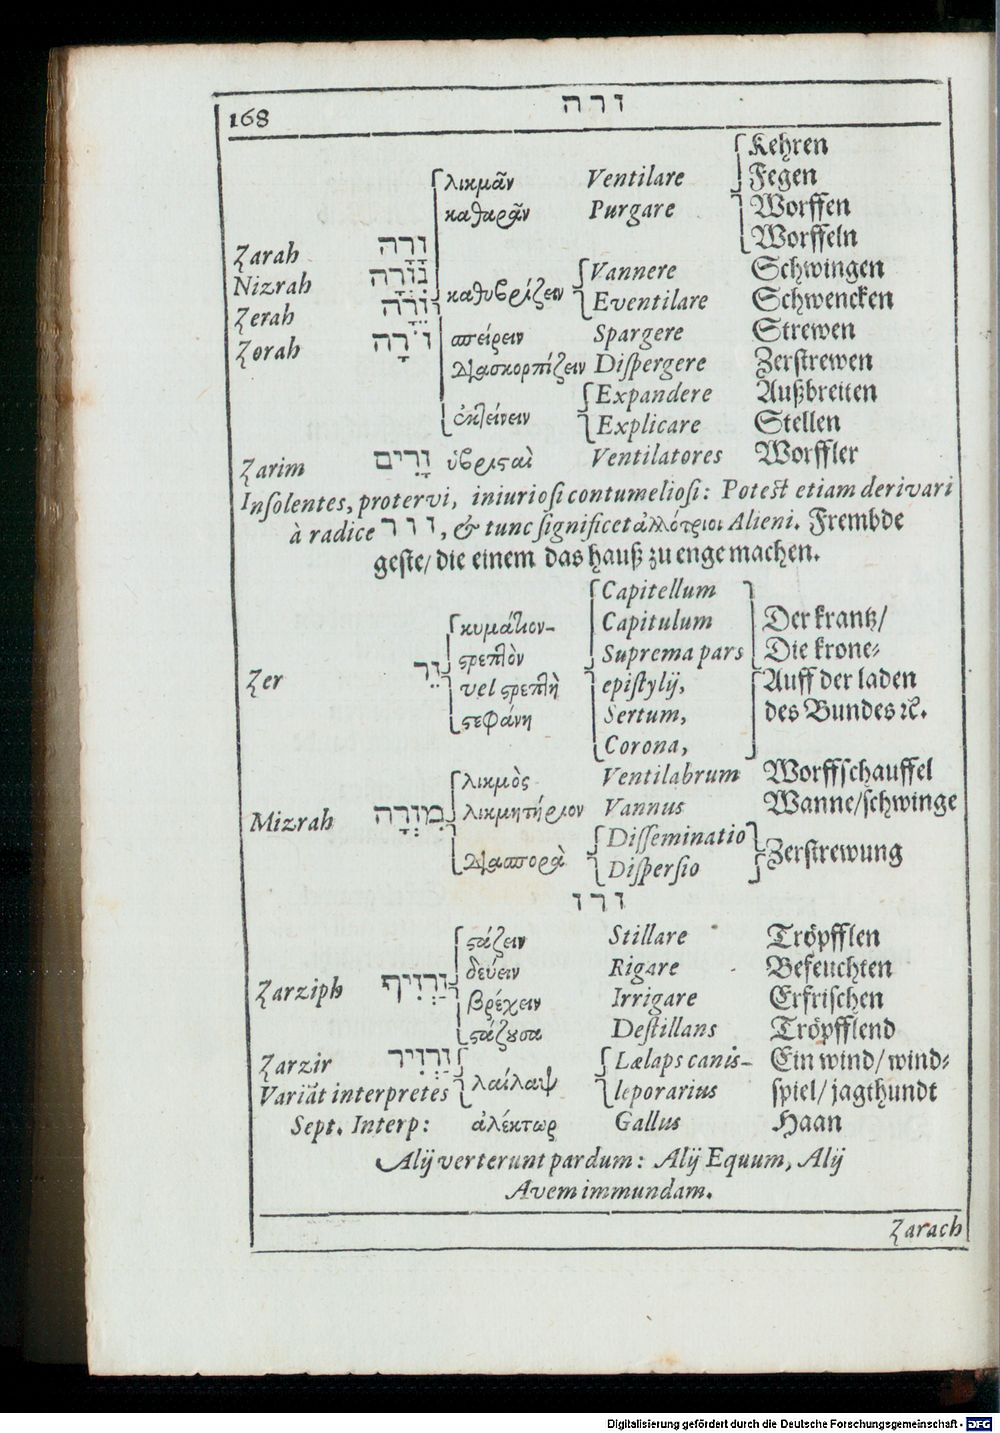 168 זרה
Kehren
λικμᾶν Ventilare Fegen
καθαρᾶν Purgare Worffen
Worffeln
Zarah זָרָה
Vannere Schwingen
Nizrah נִזְרָה
καθυβρίζειν Eventilare Schwencken
Zerah זֵרָה
σπείρειν Spargere Strewen
Zorah זֹרָה
διασκορπίζειν Diſpergere Zerſtrewen
Expandere Außbreiten
ἐκτείνειν Explicare Stellen
Zarim זָרִים ὑβρισαὶ Ventilatores Worffler
Inſolentes, protervi, iniurioſi contumelioſi: Poteſt etiam derivari
à radice זור, & tunc ſignificet ἀλλότριοι Alieni. Frembde
geſte/ die einem das hauß zu enge machen.
Capitellum
κυμάτιον- Capitulum Der krantz/
ςρεπτὸν Suprema pars Die krone⸗
Zer זֵר vel ςρεπτὴ epiſtylij, Auff der laden
ςεφάνη Sertum, des Bundes ꝛc̃.
Corona,
λικμὸς Ventilabrum Worffſchauffel
Mizrah מִזְרָה λικμητήριον Vannus Wanne/ſchwinge
Diſſeminatio
διασπορὰ Zerſtrewung
Diſperſio
זרז
ςάζειν Stillare Tröpfflen
δεύειν Rigare Befeuchten
Zarziph זַרְזִיף βρέχειν Irrigare Erfriſchen
ςάζουσα Deſtillans Tröpfflend
Zarzir זַרְזִיר Lælaps canis- Ein wind/ wind⸗
Variãt interpretes λαίλαψ leporarius ſpiel/ jagthundt
Sept. Interp: ἀλέκτωρ Gallus Haan
Alij verterunt pardum: Alij Equum, Alij
Avem immundam.
Zarach
Digitalisierung gefördert durch die Deutsche Forschungsgemeinschaft - DFG